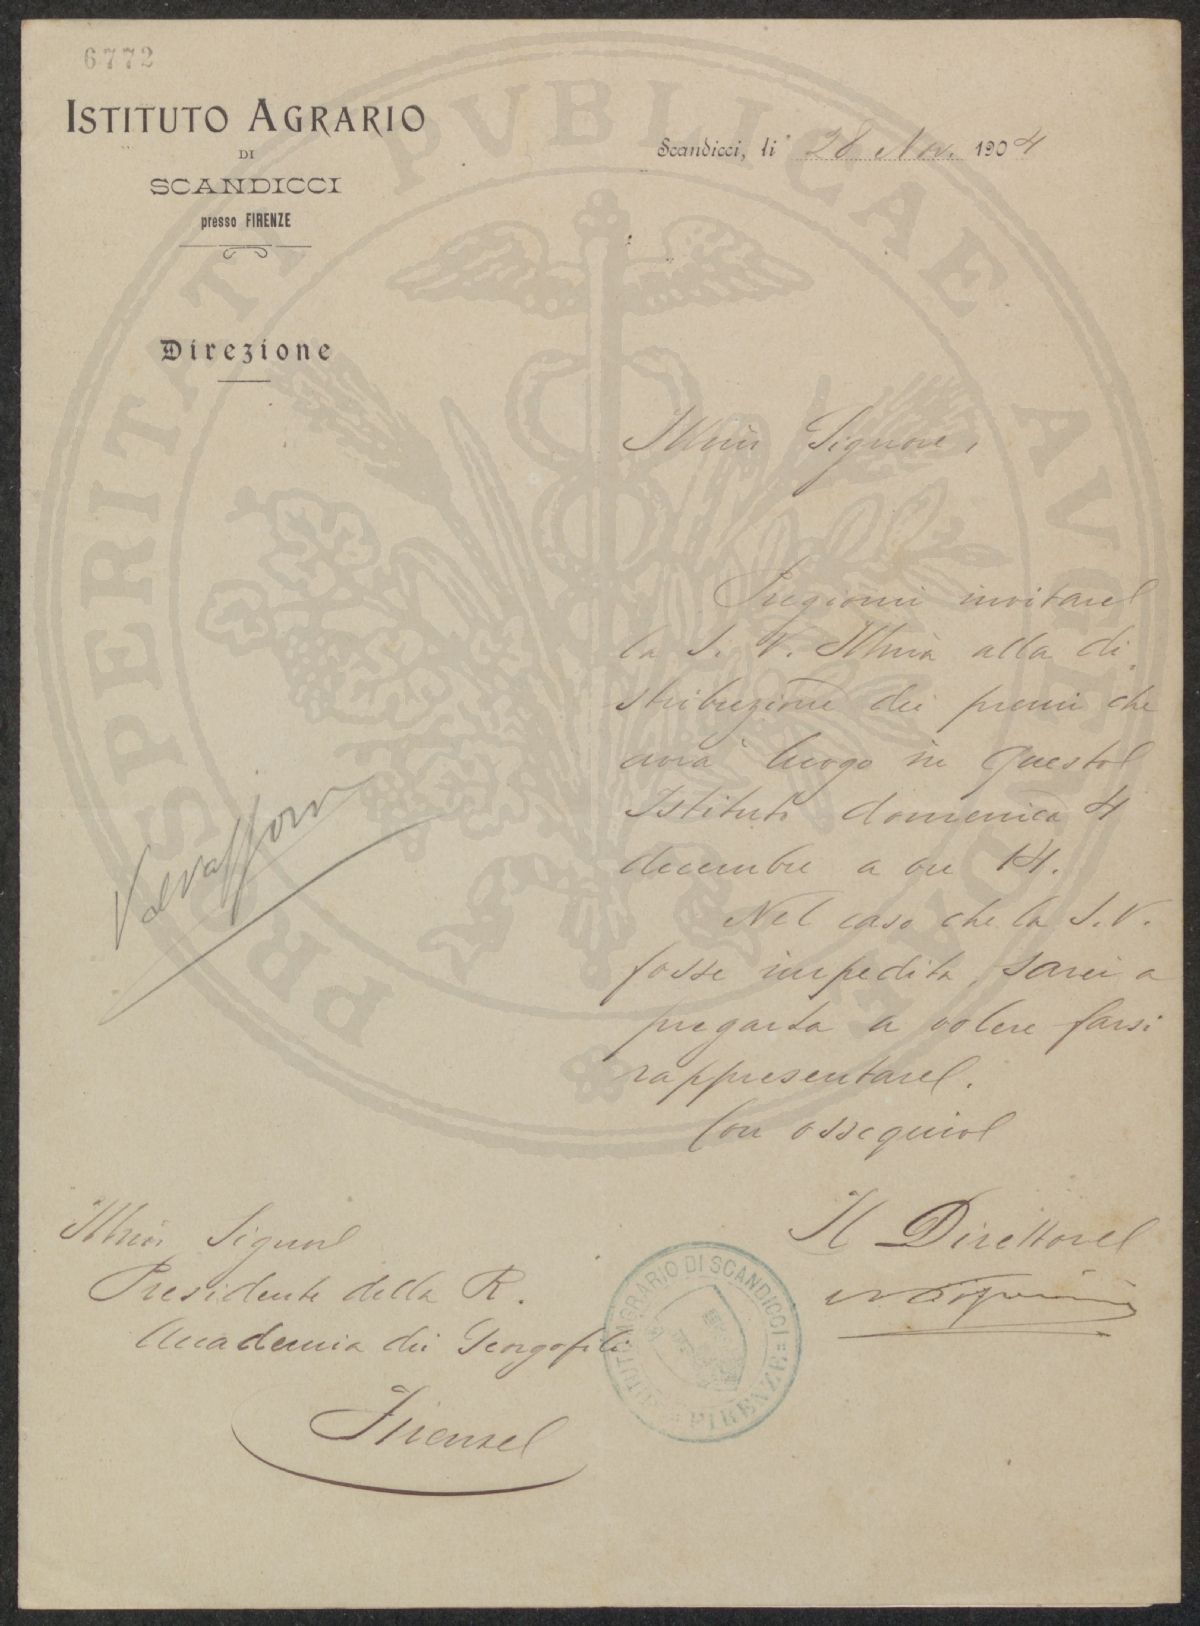 6772
ISTITUTO AGRARIO
DI
SCANDICCI
presso FIRENZE
Direzione
Scandicci, li 28 Nov. 1904
Illmo Signore,
Pregiomi invitare
la S. V. Illma alla di
stribuzione dei premi che
avrà luogo in questo
Istituto domenica 4
decembre a ore 14.
Nel caso che la S. V.
fosse impedita, sarei a
pregarla a volere farsi
rappresentare.
Con ossequio
Il Direttore
Illmo Signore
Presidente della R.
Accademia dei Georgofili
Firenze
ISTITUTO AGRARIO DI SCANDICCI
FIRENZE
PROSPERITATI PVBLICAE AVGENDAE